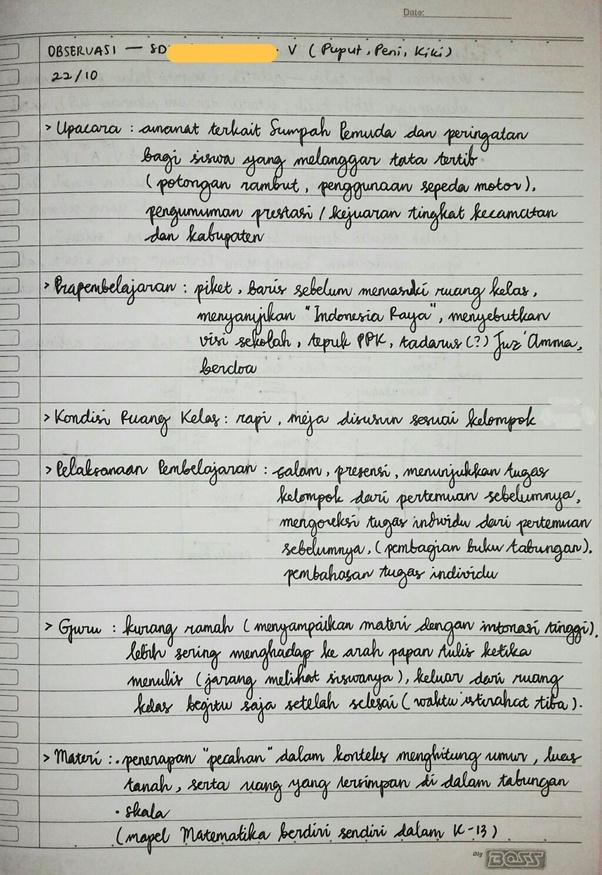 Date:
OBSERVASI — SD V (Puput, Peni, Kiki)
22/10
> Upacara : amanat terkait Sumpah Pemuda dan peringatan
bagi siswa yang melanggar tata tertib
(potongan rambut, penggunaan sepeda motor).
pengumuman prestasi / kejuaran tingkat kecamatan
dan kabupaten
> Prapembelajaran : piket, baris sebelum memasuki ruang kelas,
menyanyikan "Indonesia Raya", menyebutkan
visi sekolah, tepuk PPK, tadarus (?) Juz 'Amma,
berdoa
> Kondisi Ruang Kelas : rapi, meja disusun sesuai kelompok
> Pelaksanaan Pembelajaran : salam, presensi, menunjukkan tugas
kelompok dari pertemuan sebelumnya,
mengoreksi tugas individu dari pertemuan
sebelumnya, (pembagian buku tabungan).
pembahasan tugas individu
> Guru : kurang ramah (menyampaikan materi dengan intonasi tinggi),
lebih sering menghadap ke arah papan tulis ketika
menulis (jarang melihat siswanya), keluar dari ruang
kelas begitu saja setelah selesai (waktu istirahat tiba).
> Materi : • penerapan "pecahan" dalam konteks menghitung umur, luas
tanah, serta uang yang tersimpan di dalam tabungan
• skala
(mapel Matematika berdiri sendiri dalam K-13)
Big BOSS